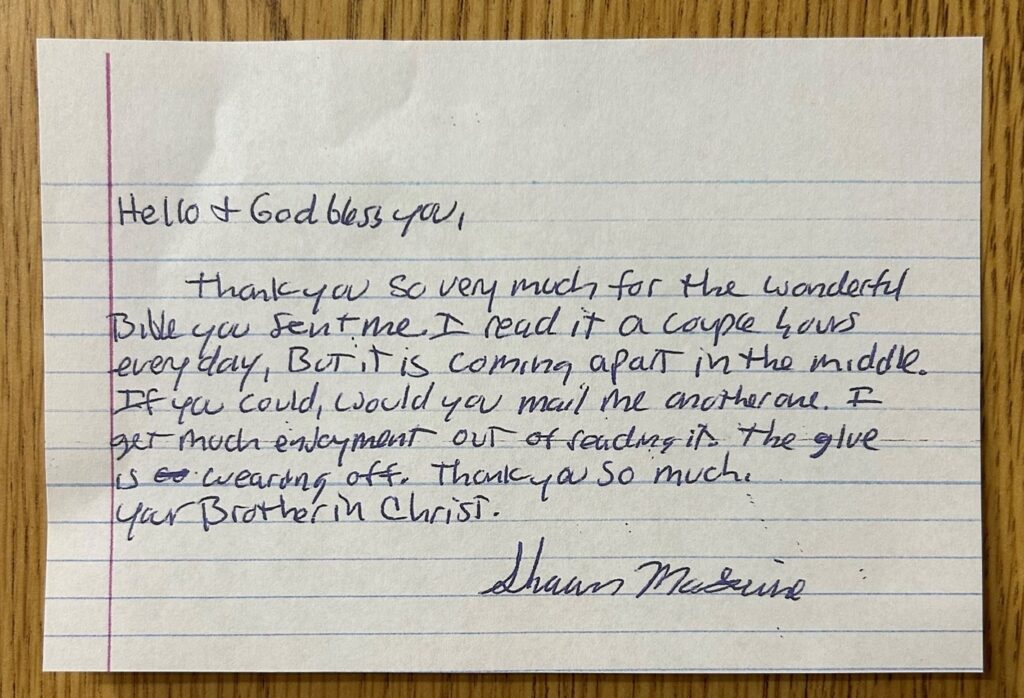 Hello + God bless you,
Thank you so very much for the wonderful
Bible you sent me. I read it a couple hours
every day, But it is coming apart in the middle.
If you could, would you mail me another one. I
get much enjoyment out of reading it. The glue
is wearing off. Thank you so much.
your Brother in Christ.
Shawn